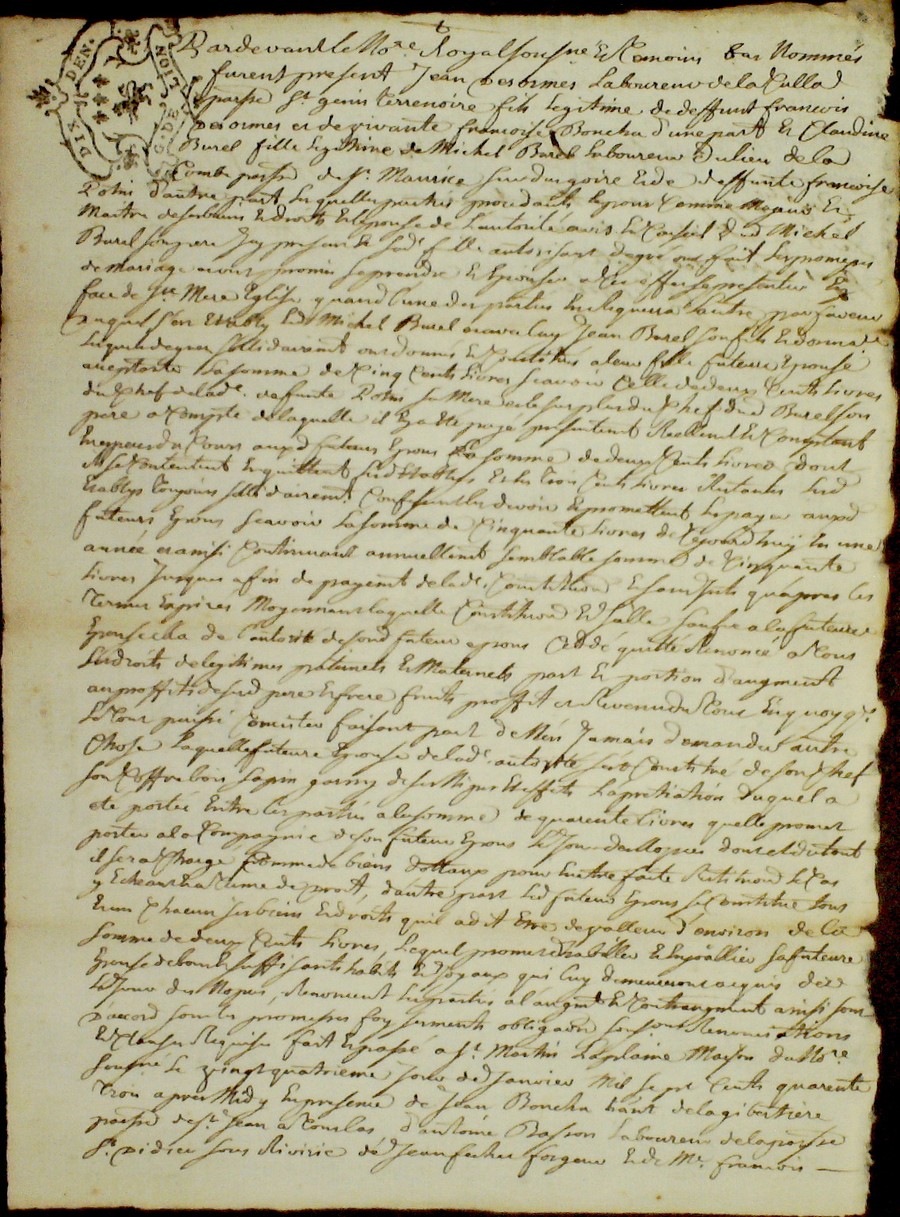 DIX DEN. G. DE LION
Pardevant le No.re Royal sousne & Temoins bas Nommés
furent present Jean Desormes Laboureur de la Culla
paroisse St genis terrenoire fils legitime de deffunt francois
Desormes et de vivante francoise Boncha d'une part Et Claudine
Burel fille legitime de Michel Burel Laboureur du lieu de la
Combe paroisse de St Maurice sur dargoire Et de deffunte francoise
d'autre part Lesquelles parties procedants Lepoux Comme Majeur Et
Maitre de ses biens Et droits Et lepouse de L'autorité avis Et Conseil dud Michel
Burel son pere Icy present Et sad. fille autorisant de gré ont fait les promesses
de mariage avoir promis se prendre Et Epouser a Ces effet se presenter En
face de Ste Mere Eglise quand l'une des parties En requerra L'autre par faveur
duquel s'est Etably led Michel Burel avec luy Jean Burel son fils
Lesquels de gré sollidairement ont donné Et Constitué a leur fille future Epouse
acceptante la somme de Cinq Cents livres scavoir Celle de deux Cents livres
du Chef de lad. defunte sa Mere et le surplus du Chef dud Burel son
pere a Compte de laquelle il En a Eté payé presentement Reellement Et Comptant
En especes du Cours auxd futurs Epoux la somme de deux Cents livres dont
Ils se Contentent En quittent lesd Etablys Et les Trois Cents livres Restantes lesd
Etablys Toujours sollidairement Confessent les devoir Et promettent les payer auxd
futurs Epoux scavoir la somme de Cinquante livres de Cejourdhuy En une
année, et ainsi Continuant annuellement semblable somme de Cinquante
livres Jusques a fin de payement de lad. Constitution Et sans Interets qu'apres les
Termes Expirés Moyennant laquelle Constitution Et Icelle sauve a la future
Epouse Elle de L'autorité de sond futur epoux a Cedé quitté Renoncé a Tous
ses droits de legitimes paternels Et Maternels part Et portion d'augment
au proffit de sesd pere Et frere fruits proffit et Revenu du Tout En quoy q.e
Le Tout puisse Consister faisant part de n'en Jamais demander autre
Chose Laquelle future Epouse de lad. autorité s'est Constitué de son Chef
son Coffre bois sapin garny de ses Nipes Et effets La pretiation duquel a
eté portée Entre les parties a la somme de quarente livres quelle promet
porter a la Compagnie de son futur Epoux Le Jour dont et du tout
il sera Chargé Comme de biens dottaux pour En etre faite Restitution le Cas
y Echeant a la Rime de droit, d'autre part led futur Epoux se Constitue Tous
Et un Chacun ses biens Et droits qu'il a dit Etre de valleur d'environ de la
somme de deux Cents livres, Lequel promet habiller Et Enjoallier sa future
Epouse de bons Et suffisants habits Et Joyaux qui luy demeureront acquis dez
Le Jour des Nopces, Renoncent Les parties a l'augment Et Contraugment ainsi sont
D'accord sous les promesses foy serments obligaon sousons Renonciations
Et Clauses Requises fait Et passé a St. Martin La plaine Maison du No.re
sousné Le vingt quatrieme jour de Janvier Mil sept Cents quarente
Trois apres Midy En presence de Jean Boncha
paroisse de St Jean a Toulas d'antoine Basson Laboureur de la paroisse
St. Didier sous Riverie de Jean forgeur Et de Mr. francois —